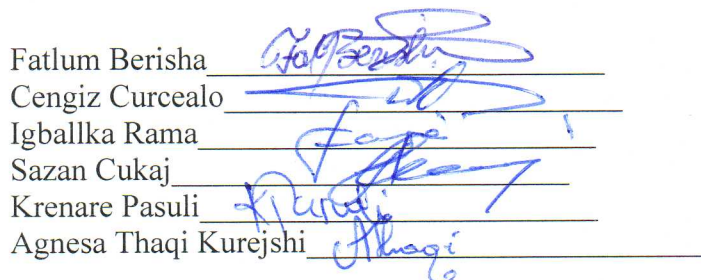 Fatlum Berisha
Cengiz Curcealo
Igballka Rama
Sazan Cukaj
Krenare Pasuli
Agnesa Thaqi Kurejshi